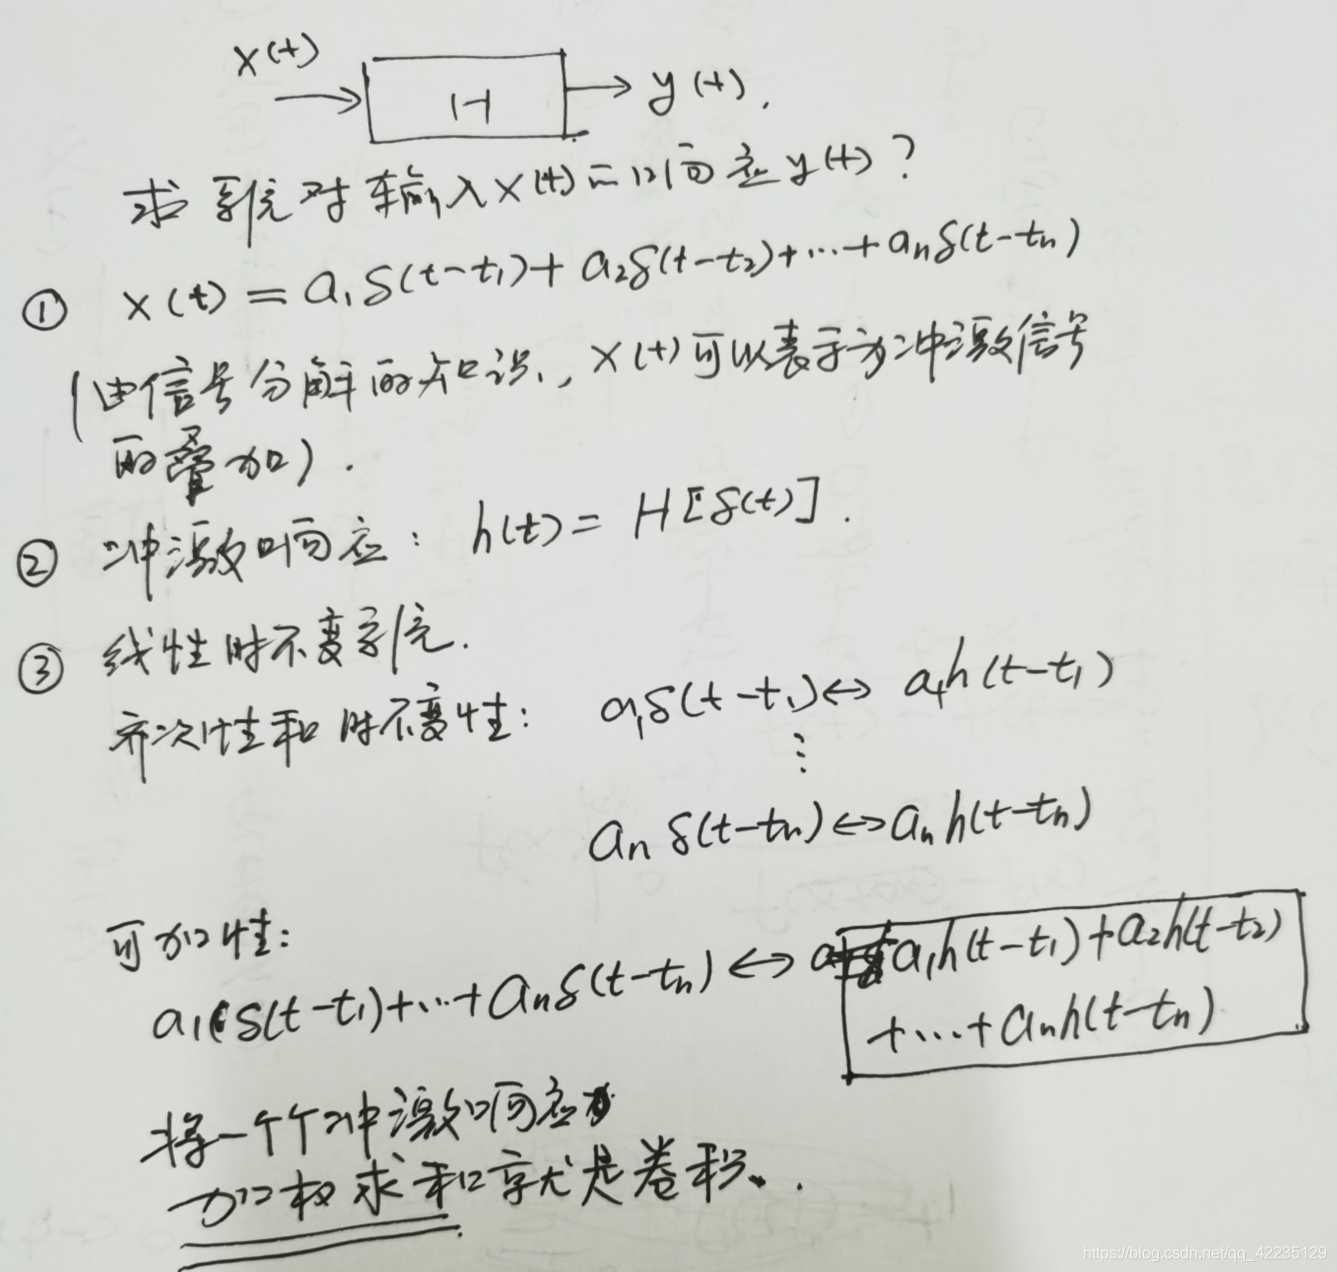 x(t)
H
y(t).
求系统对输入x(t)的响应y(t)?
① x(t) = a₁δ(t-t₁)+a₂δ(t-t₂)+…+aₙδ(t-tₙ)
(由信号分解的知识, x(t)可以表示为冲激信号
的叠加).
② 冲激响应: h(t) = H[δ(t)].
③ 线性时不变系统.
齐次性和时不变性: a₁δ(t-t₁)↔ a₁h(t-t₁)
⋮
aₙδ(t-tₙ)↔aₙh(t-tₙ)
可加性:
a₁δ(t-t₁)+…+aₙδ(t-tₙ)↔ a₁h(t-t₁)+a₂h(t-t₂)
+…+aₙh(t-tₙ)
将一个个冲激响应
加权求和享尤是卷积.
https://blog.csdn.net/qq_42235129